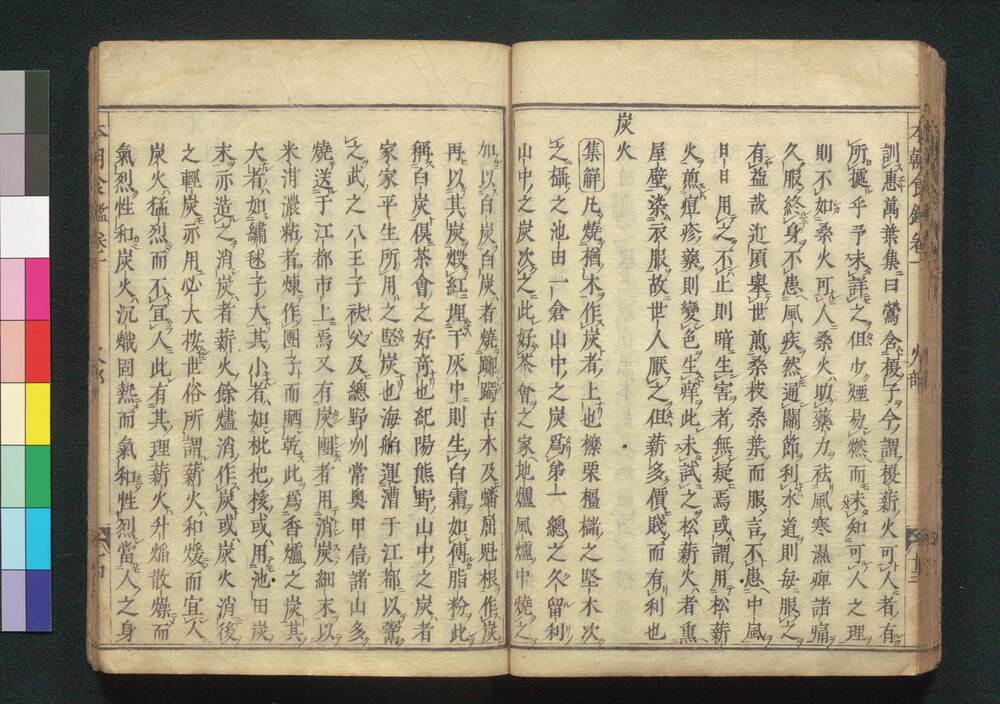 本朝食鑑卷一 火部 十三
訓惠萬葉集曰鶯舍榎子今謂榎薪火可人者有
所據乎予未詳之但少煙易燃而未知可人之理
則不如桑火可人桑火助藥力祛風寒濕痺諸痛
久服終身不患風疾然通關節利水道則每服之
有益哉近頃舉世煎桑枝桑葉而服言不患中風
日日用之不止則暗生害者無疑焉或謂用松薪
火煎痘疹藥則變色生痒此未試之松薪火者熏
屋壁染衣服故世人厭之但薪多價賤而有利也
炭火
集解凡燒楢木作炭者上也櫟栗橿櫧之堅木次
之攝之池田一倉山中之炭爲第一總之久留利
山中之炭次之此好茶會之家地爐風爐中燒之
加以白炭白炭者燒躑躅古木及蟠屈虬根作炭
再以其炭煅紅埋干灰中則生白霜如傅脂粉此
稱白炭俱茶會之好竒也紀陽熊野山中之炭者
家家平生所用之堅炭也海舶運漕于江都以鬻
之武之八王子秩父及總野刕常奧甲信諸山多
燒送于江都市上焉又有炭團者用消炭細末以
米泔濃粘者煉作團子而晒乾此爲香爐之炭其
大者如繡毬子大其小者如枇杷核或用池田炭
末亦造之消炭者薪火餘燼消作炭或炭火消後
之輕炭亦用必大按世俗所謂薪火和煖而宜人
炭火猛烈而不宜人此有其理薪火升焔散燥而
氣烈性和炭火沉熾固熱而氣和性烈當人之身
本朝食鑑卷一 火部 十四